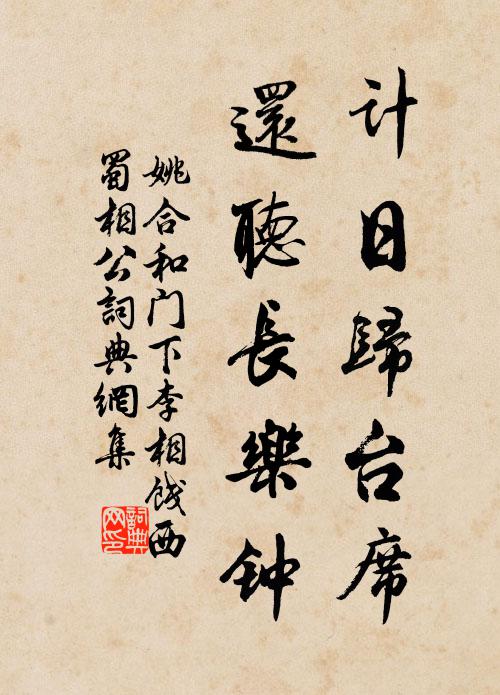 計日歸台席
還聽長樂钟
姚合和门下李相餞西
蜀相公詞典網集
詞典网印